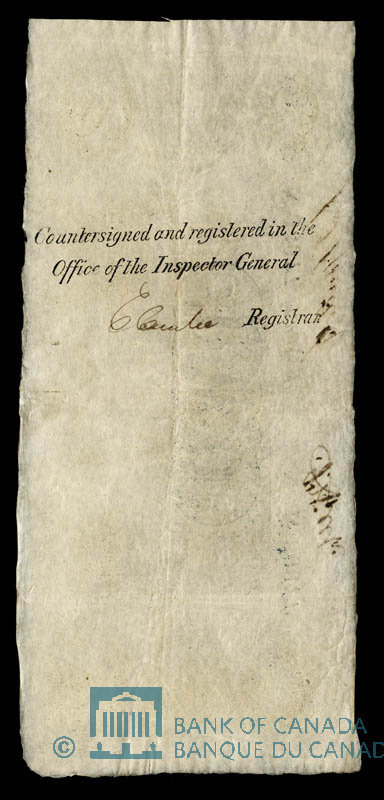 Countersigned and registered in the
Office of the Inspector General
Registrar
© BANK OF CANADA
BANQUE DU CANAD